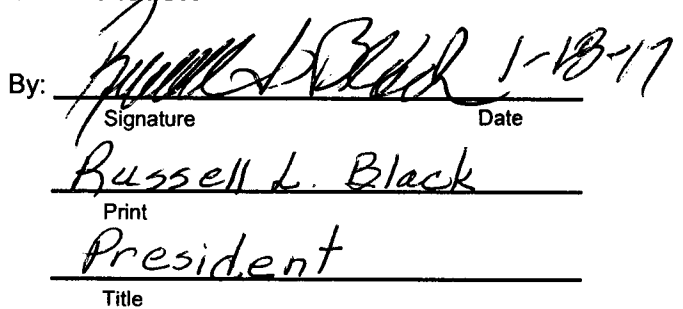 By: Russell L Black 1-18-17
Signature Date
Russell L. Black
Print
President
Title